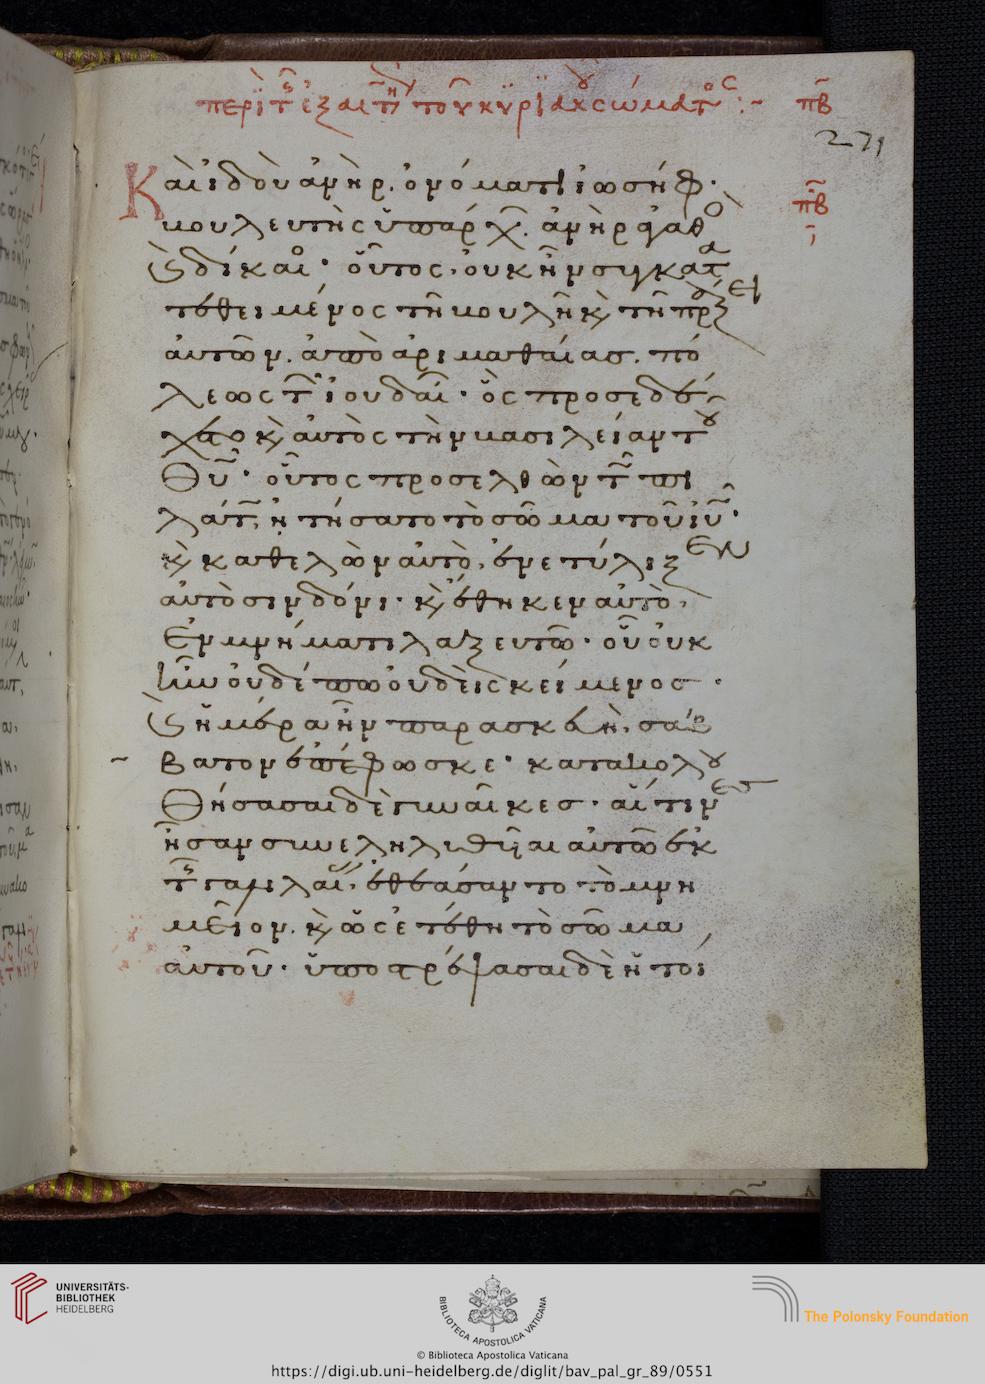 περὶ τῆς ἐξαιτήσεως τοῦ κυριακοῦ σώματος: πβ
271
Καὶ ἰδοὺ ἀνὴρ. ὀνόματι ἰωσὴφ·
πβ
ι
βουλευτὴς ὑπάρχων. ἀνὴρ ἀγαθὸς
καὶ δίκαιος· οὗτος. οὐκ ἦν συγκατα
τεθειμένος τῆ βουλῆ κ τῆ πράξει
αὐτῶν. ἀπὸ ἀριμαθαίας. πό
λεως τῶν ἰουδαίων· ὃς προσεδέ
χετο κ αὐτὸς τὴν βασιλείαν τοῦ
Θυ· οὗτος προσελθὼν τῶ πι
λάτω, ἠτήσατο τὸ σῶμα τοῦ ιυ·
κ καθελὼν αὐτὸ, ἐνετύλιξεν
αὐτὸ σινδόνι· κ ἔθηκεν αὐτὸ,
ἐν μνήματι λαξευτῶ· οὗ οὐκ
ἦν οὐδέπω οὐδεὶς κείμενος·
καὶ ἡμέρα ἦν παρασκευὴ, σάβ
βατον ἐπέφωσκε· κατακολου
Θήσασαι δὲ γυναῖκες· αἵτινες
ἦσαν συνεληλυθῆαι αὐτῶ ἐκ
τῆς γαλιλαίας, ἐθεάσαντο τὸ μνη
μεῖον. κ ὡς ἐτέθη τὸ σῶμα
αὐτοῦ· ὑποστρέψασαι δὲ ἡτοί
UNIVERSITÄTS-
BIBLIOTHEK
HEIDELBERG
BIBLIOTECA APOSTOLICA VATICANA
The Polonsky Foundation
© Biblioteca Apostolica Vaticana
https://digi.ub.uni-heidelberg.de/diglit/bav_pal_gr_89/0551